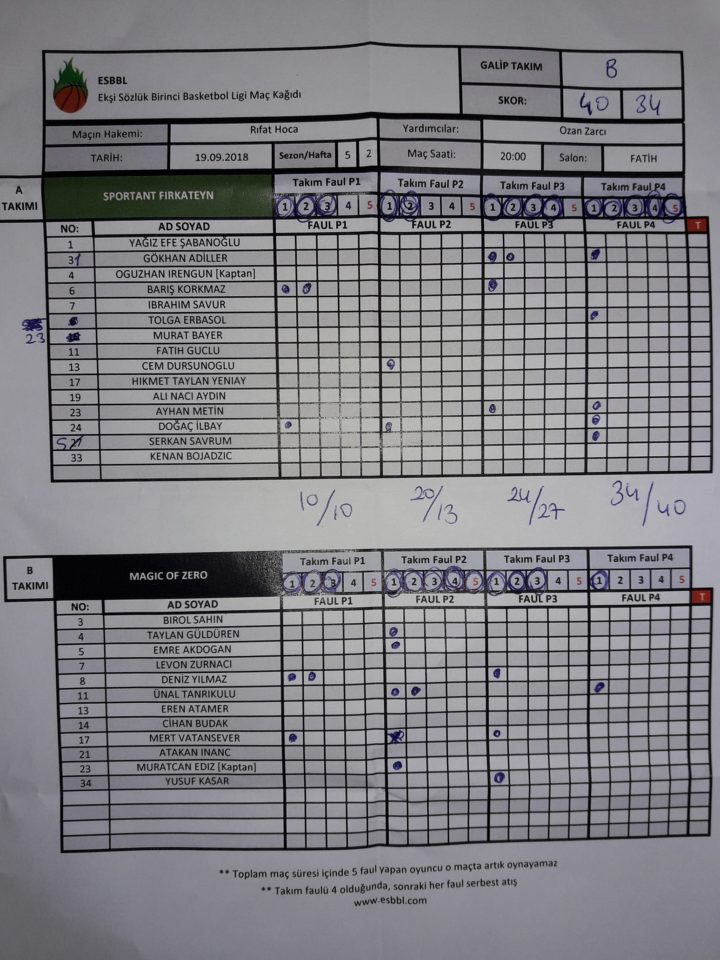 ESBBL
Ekşi Sözlük Birinci Basketbol Ligi Maç Kağıdı
GALİP TAKIM B
SKOR: 40 34
Maçın Hakemi: Rıfat Hoca Yardımcılar: Ozan Zarcı
TARİH: 19.09.2018 Sezon/Hafta 5 2 Maç Saati: 20:00 Salon: FATİH
A TAKIMI SPORTANT FIRKATEYN Takım Faul P1 Takım Faul P2 Takım Faul P3 Takım Faul P4
1 2 3 4 5 1 2 3 4 5 1 2 3 4 5 1 2 3 4 5
NO: AD SOYAD FAUL P1 FAUL P2 FAUL P3 FAUL P4 T
1 YAĞIZ EFE ŞABANOĞLU
31 GÖKHAN ADİLLER
4 OGUZHAN IRENGUN [Kaptan]
6 BARIŞ KORKMAZ
7 IBRAHIM SAVUR
TOLGA ERBASOL
23 MURAT BAYER
11 FATIH GUCLU
13 CEM DURSUNOGLU
17 HIKMET TAYLAN YENIAY
19 ALI NACI AYDIN
23 AYHAN METİN
24 DOĞAÇ İLBAY
SERKAN SAVRUM
33 KENAN BOJADZIC
10/10 20/13 24/27 34/40
B TAKIMI MAGIC OF ZERO Takım Faul P1 Takım Faul P2 Takım Faul P3 Takım Faul P4
1 2 3 4 5 1 2 3 4 5 1 2 3 4 5 1 2 3 4 5
NO: AD SOYAD FAUL P1 FAUL P2 FAUL P3 FAUL P4 T
3 BIROL SAHIN
4 TAYLAN GÜLDÜREN
5 EMRE AKDOGAN
7 LEVON ZURNACI
8 DENİZ YILMAZ
11 ÜNAL TANRIKULU
13 EREN ATAMER
14 CİHAN BUDAK
17 MERT VATANSEVER
21 ATAKAN INANC
23 MURATCAN EDIZ [Kaptan]
34 YUSUF KASAR
** Toplam maç süresi içinde 5 faul yapan oyuncu o maçta artık oynayamaz
** Takım faulü 4 olduğunda, sonraki her faul serbest atış
www.esbbl.com